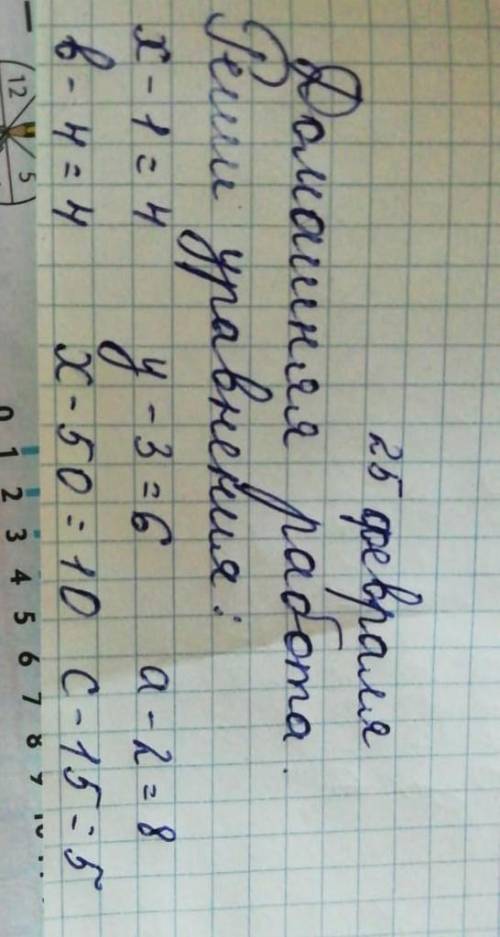 25 февраля
Домашняя работа.
Реши уравнения:
х - 1 = 4 у - 3 = 6 а - 2 = 8
в - 4 = 4 х - 50 = 10 с - 15 = 5
12 5
0 1 2 3 4 5 6 7 8 9 10